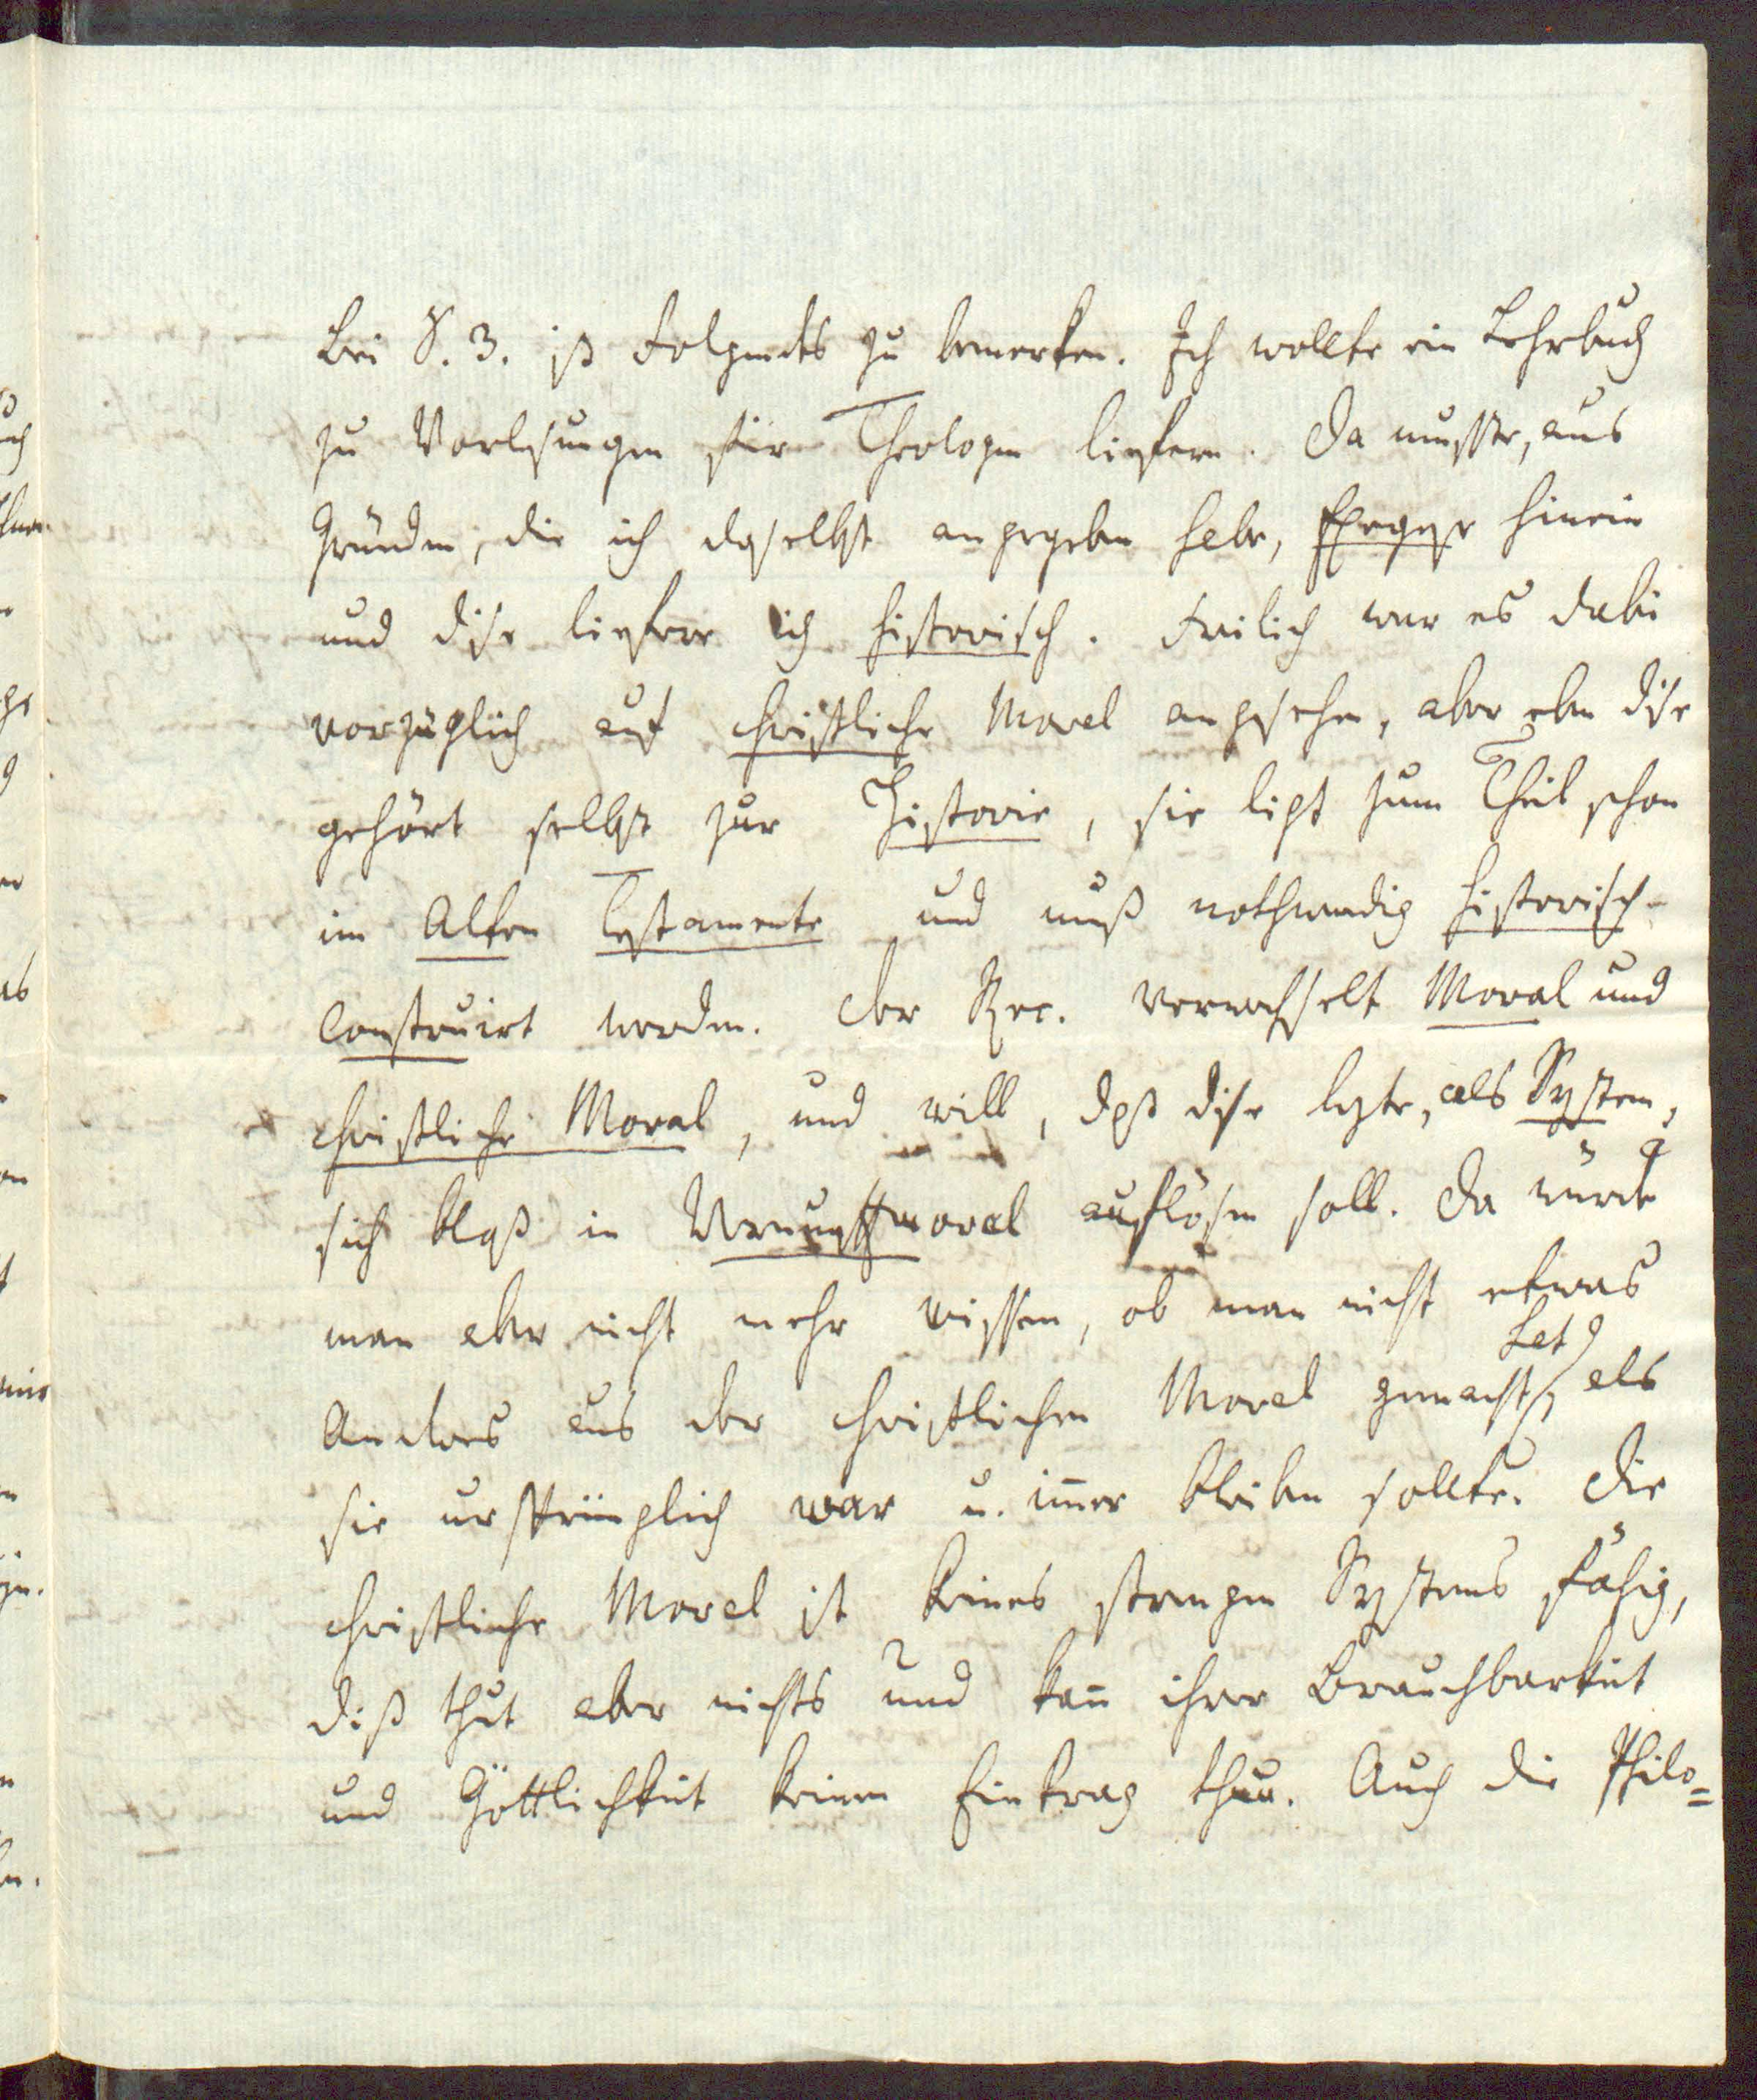 Bei §. 3. ist Folgendes zu bemerken. Ich wollte ein Lehrbuch
zu Vorlesungen für Theologen liefern. Da musste, aus
Gründen, die ich daselbst angegeben habe, Exegese hinein
und dise liefere ich historisch. Freilich war es dabei
vorzüglich auf christliche Moral angesehen, aber eben dise
gehört selbst zur Historie, sie ligt zum Theil schon
im Alten Testamente und muß nothwendig historisch-
construirt werden. Der Rec. verwechselt Moral und
christliche Moral, und will, daß dise lezte, als System,
sich bloß in Vernunftmoral auflösen soll. Da würde
man aber nicht mehr wissen, ob man nicht etwas
Anderes aus der christlichen Moral gemacht hat, als
sie ursprünglich war u. im̄er bleiben sollte. Die
christliche Moral ist keines strengen Systems fähig,
diß thut aber nichts und kan̄ ihrer Brauchbarkeit
und Göttlichkeit keinen Eintrag thun. Auch die Philo=